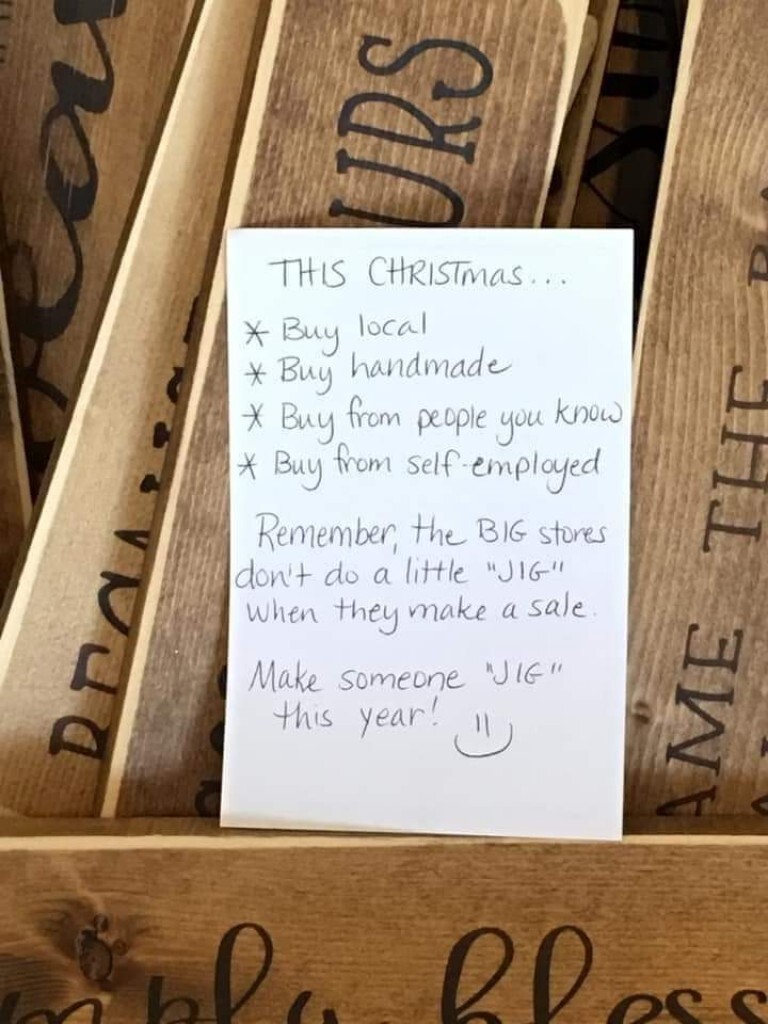 URS
THIS CHRISTmas...
* Buy local
* Buy handmade
* Buy from people you know
* Buy from self-employed
Remember, the BIG stores
don't do a little "JIG"
when they make a sale.
Make someone "JIG"
this year!
AME THE
mply bless